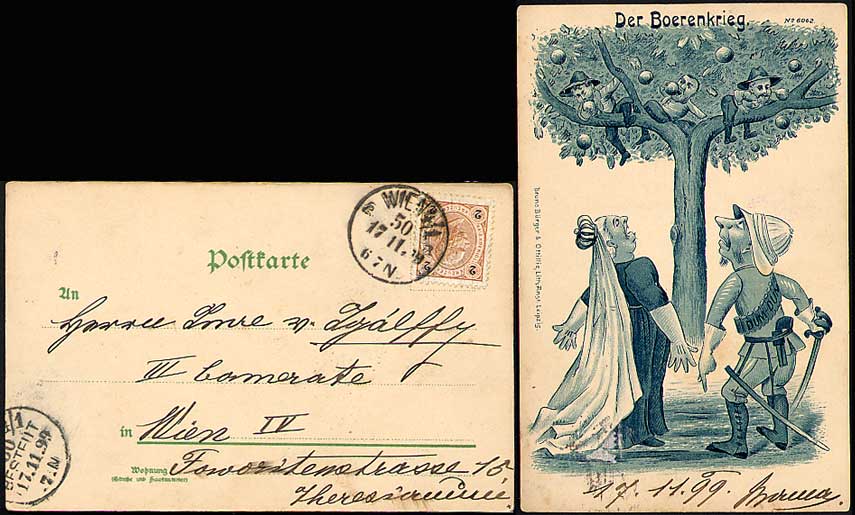 WIEN 4/1
50
17 11 99
6-7 N
2
2
Postkarte
An
Herrn Imre v. Zgálffy
III Camerate
in Wien IV
Wohnung
(Straße und Hausnummer)
Favoritenstrasse 15
Theresianum
BESTELLT
17.11.99
Der Boerenkrieg.
No 6062.
Bruno Bürger & Ottillie, Lith. Anst. Leipzig.
17. 11. 99. Mama.